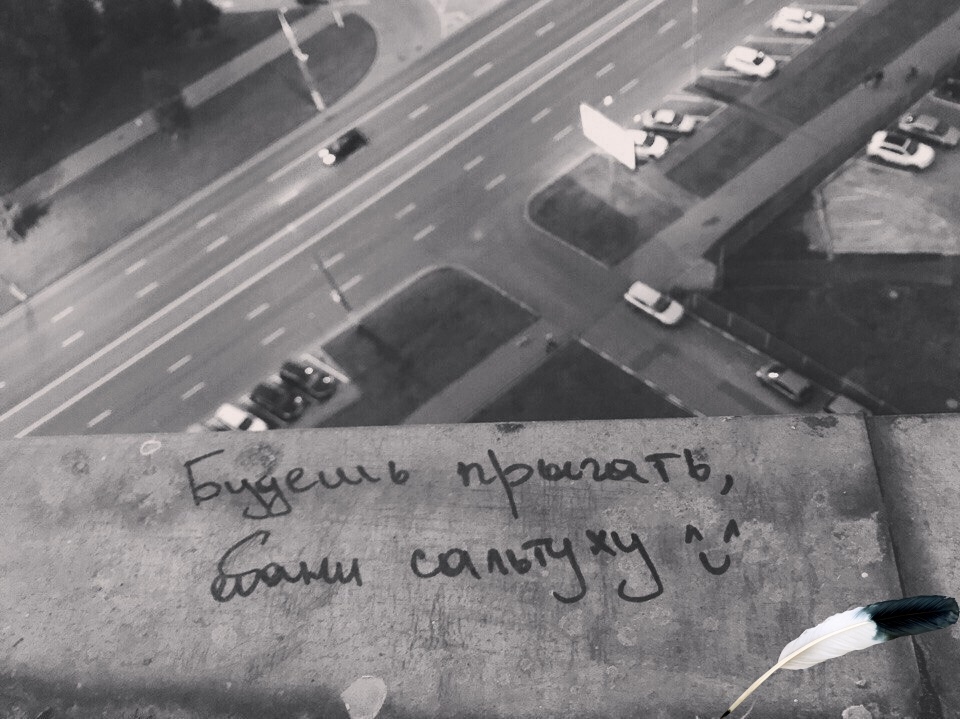 Будешь прыгать,
ебани сальтуху ^‿^